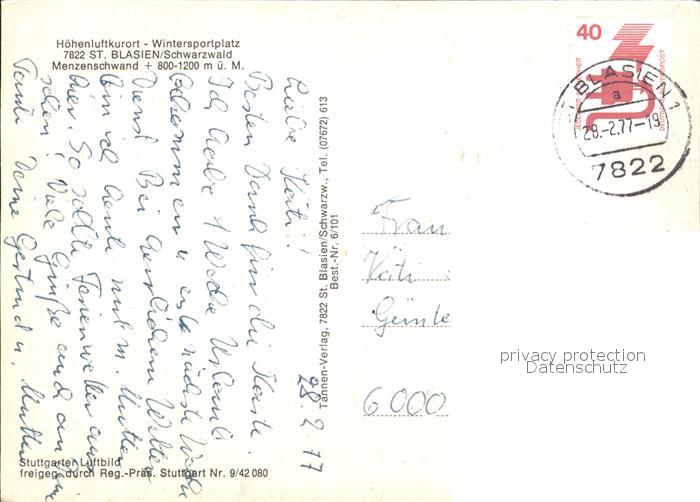 Höhenluftkurort - Wintersportplatz
7822 ST. BLASIEN/Schwarzwald
Menzenschwand + 800-1200 m ü. M.
28.2.77
Liebe Käti!
Besten Dank für die Karte.
Ich habe 1 Woche Urlaub
bekommen u. erst nächste Woche
Dienst. Bei herrlichem Wetter
bin ich heute mit m. Mutter
hier. So sollte Ferienwetter aus-
sehen! Viele Grüße auch an Deine
Tante Deine Gertrud u. Mutter
Tannen-Verlag, 7822 St. Blasien/Schwarzw., Tel. (07672) 613
Best.-Nr. 6/101
Stuttgarter Luftbild
freigeg. durch Reg.-Präs. Stuttgart Nr. 9/42 080
40
DEUTSCHE BUNDESPOST
BLASIEN 1
a
28.-2.77-19
7822
Frau
Käti
Günte
6000
privacy protection
Datenschutz